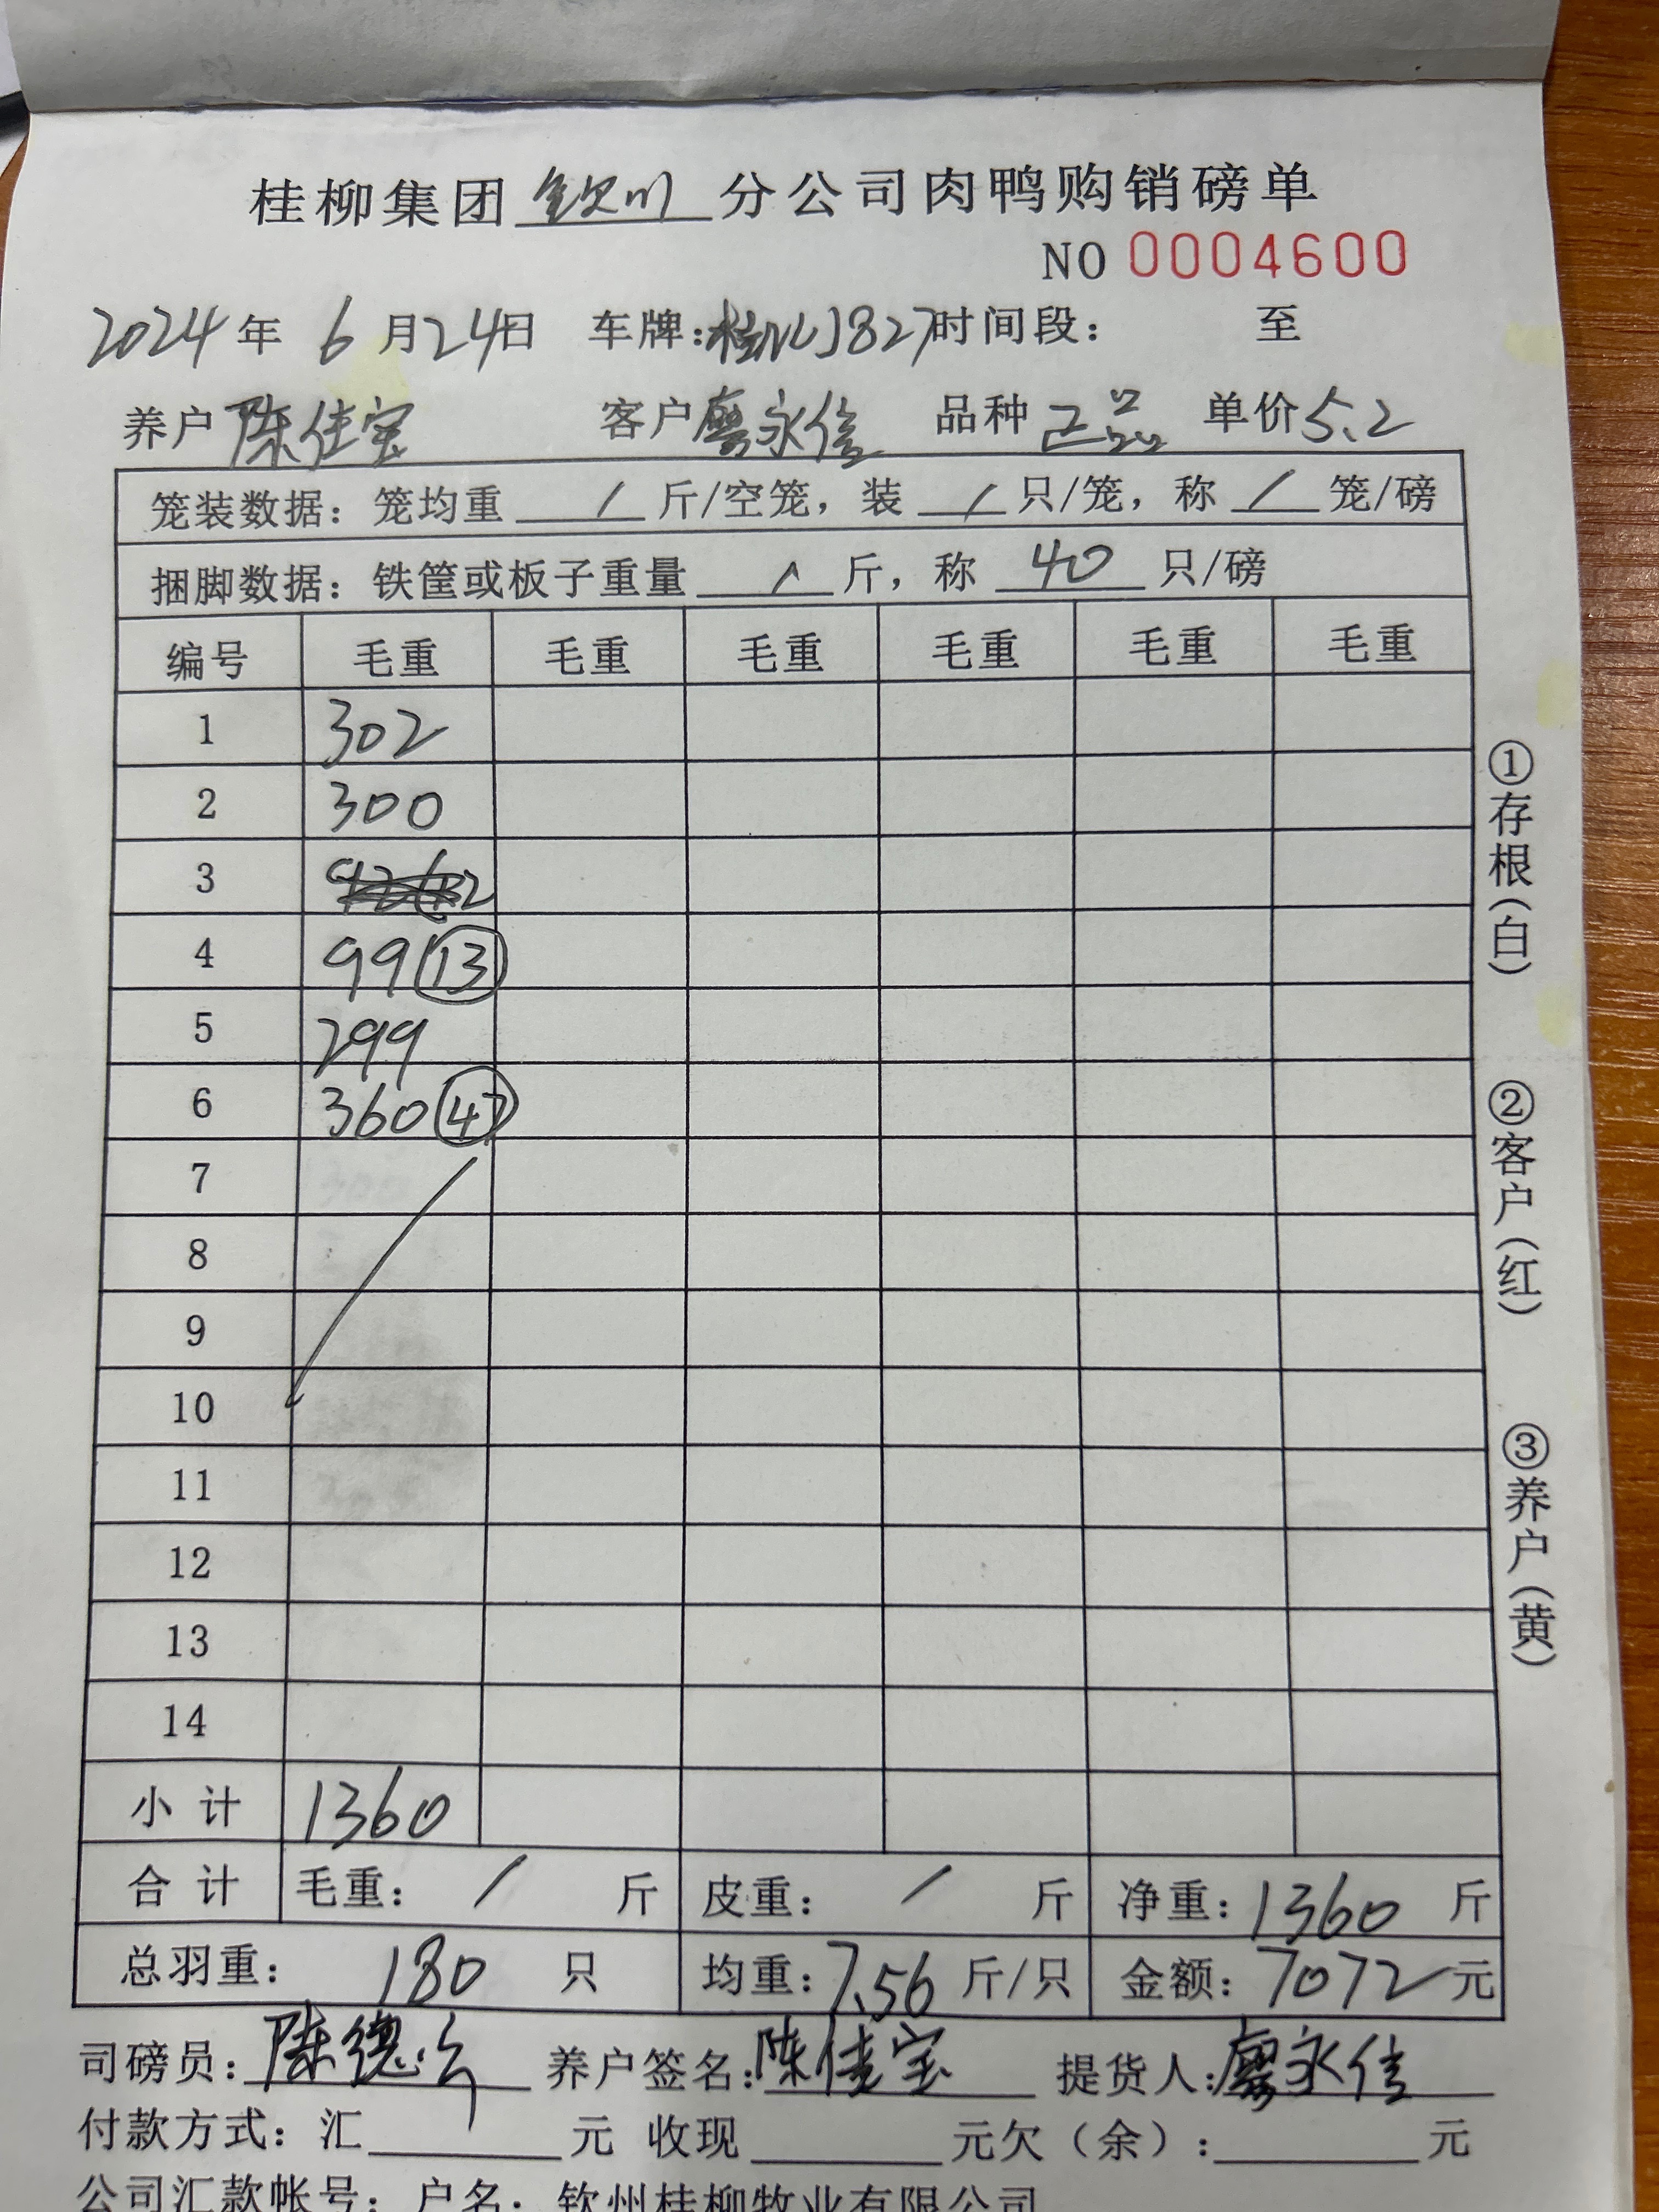 桂柳集团钦州分公司肉鸭购销磅单
NO 0004600
2024年 6月24日 车牌:桂NJ827 时间段: 至
养户 陈佳宝 客户 廖永信 品种 正品 单价 5.2
笼装数据:笼均重 / 斤/空笼,装 / 只/笼,称 / 笼/磅
捆脚数据:铁筐或板子重量 / 斤,称 40 只/磅
编号 毛重 毛重 毛重 毛重 毛重 毛重
1 302
2 300
3
4 99 (13)
5 299
6 360 (47)
7
8
9
10
11
12
13
14
小计 1360
合计 毛重: / 斤 皮重: / 斤 净重:1360 斤
总羽重: 180 只 均重:7.56 斤/只 金额:7072元
司磅员:陈德 养户签名:陈佳宝 提货人:廖永信
付款方式:汇 元 收现 元欠(余): 元
公司汇款帐号:户名:钦州桂柳牧业有限公司
①存根(白)
②客户(红)
③养户(黄)